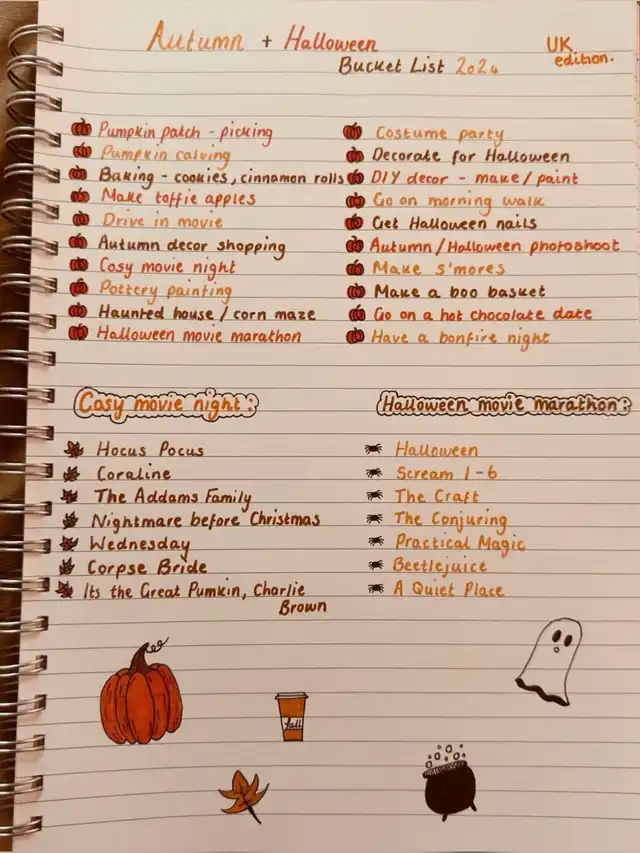 Autumn + Halloween
Bucket List 2024
UK
edition.
Pumpkin patch - picking
Pumpkin calving
Baking - cookies, cinnamon rolls
Make toffie apples
Drive in movie
Autumn decor shopping
Cosy movie night
Pottery painting
Haunted house / corn maze
Halloween movie marathon
Costume party
Decorate for Halloween
DIY decor - make / paint
Go on morning walk
Get Halloween nails
Autumn / Halloween photoshoot
Make s'mores
Make a boo basket
Go on a hot chocolate date
Have a bonfire night
Cosy movie night:
Hocus Pocus
Coraline
The Addams Family
Nightmare before Christmas
Wednesday
Corpse Bride
Its the Great Pumkin, Charlie
Brown
Halloween movie marathon:
Halloween
Scream 1-6
The Craft
The Conjuring
Practical Magic
Beetlejuice
A Quiet Place
fall